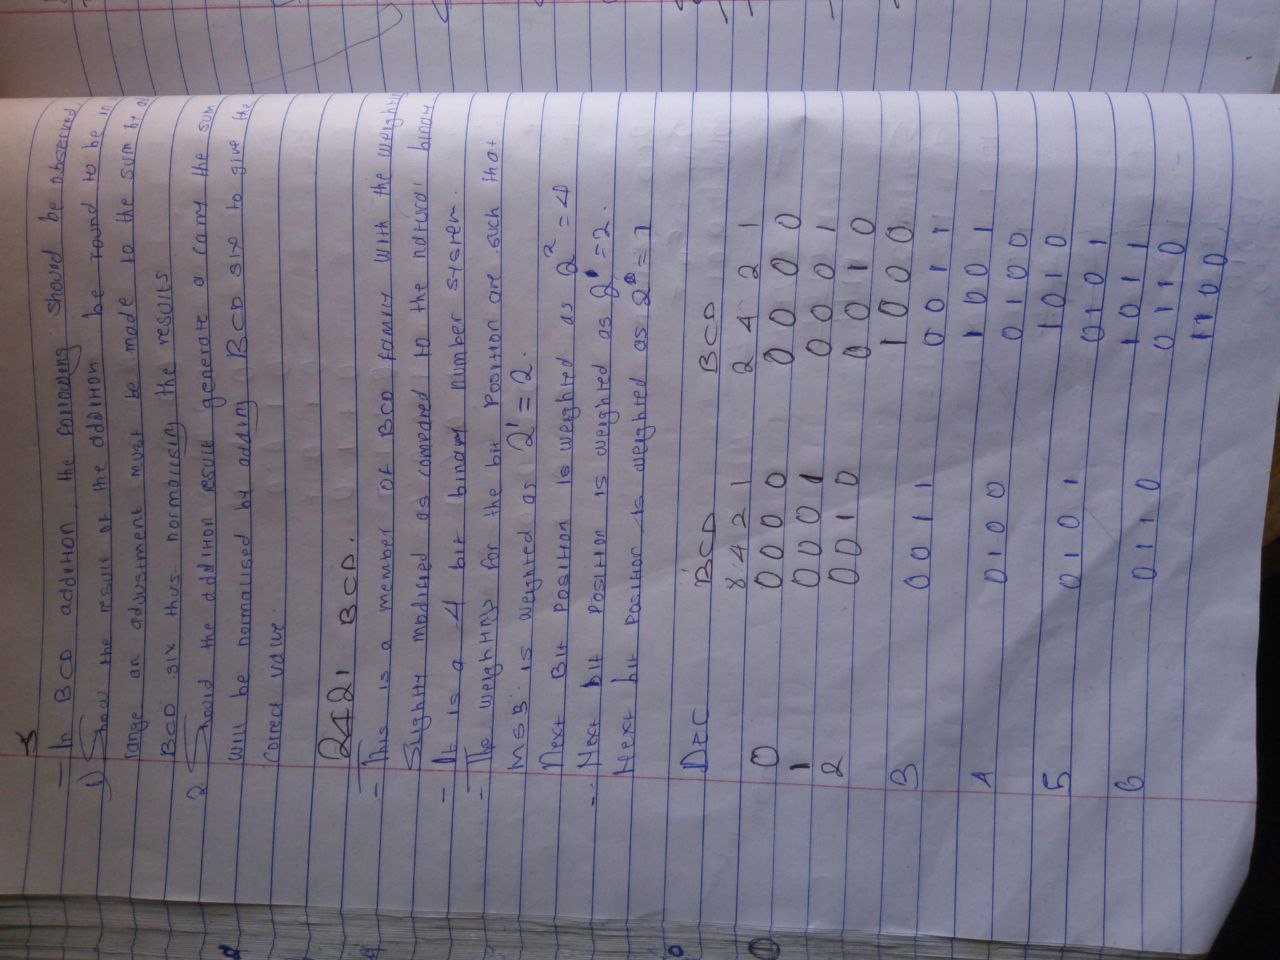 - In BCD addition the following should be observed.
1) Show the result of the addition be found to be in
range an adjustment must be made to the sum by
BCD six thus normalising the results
2. Should the addition result generate a carry the sum
will be normalised by adding BCD six to give the
correct value.
2421 BCD.
- This is a member of BCD family with the
slightly modified as compared to the natural binary
- It is a 4 bit binary number system.
- The weightings for the bit position are such that
MSB is weighted as 2¹ = 2.
Next Bit position is weighted as 2² = 4
- Next bit position is weighted as 2¹ = 2.
Next bit position is weighted as 2⁰ = 1
DEC BCD BCD
8 4 2 1 2 4 2 1
0 0 0 0 0 0 0 0 0
1 0 0 0 1 0 0 0 1
2 0 0 1 0 0 0 1 0
1 0 0 0
3 0 0 1 1 0 0 1 1
1 0 0 1
4 0 1 0 0 0 1 0 0
1 0 1 0
5 0 1 0 1 0 1 0 1
1 0 1 1
6 0 1 1 0 0 1 1 0
1 1 0 0